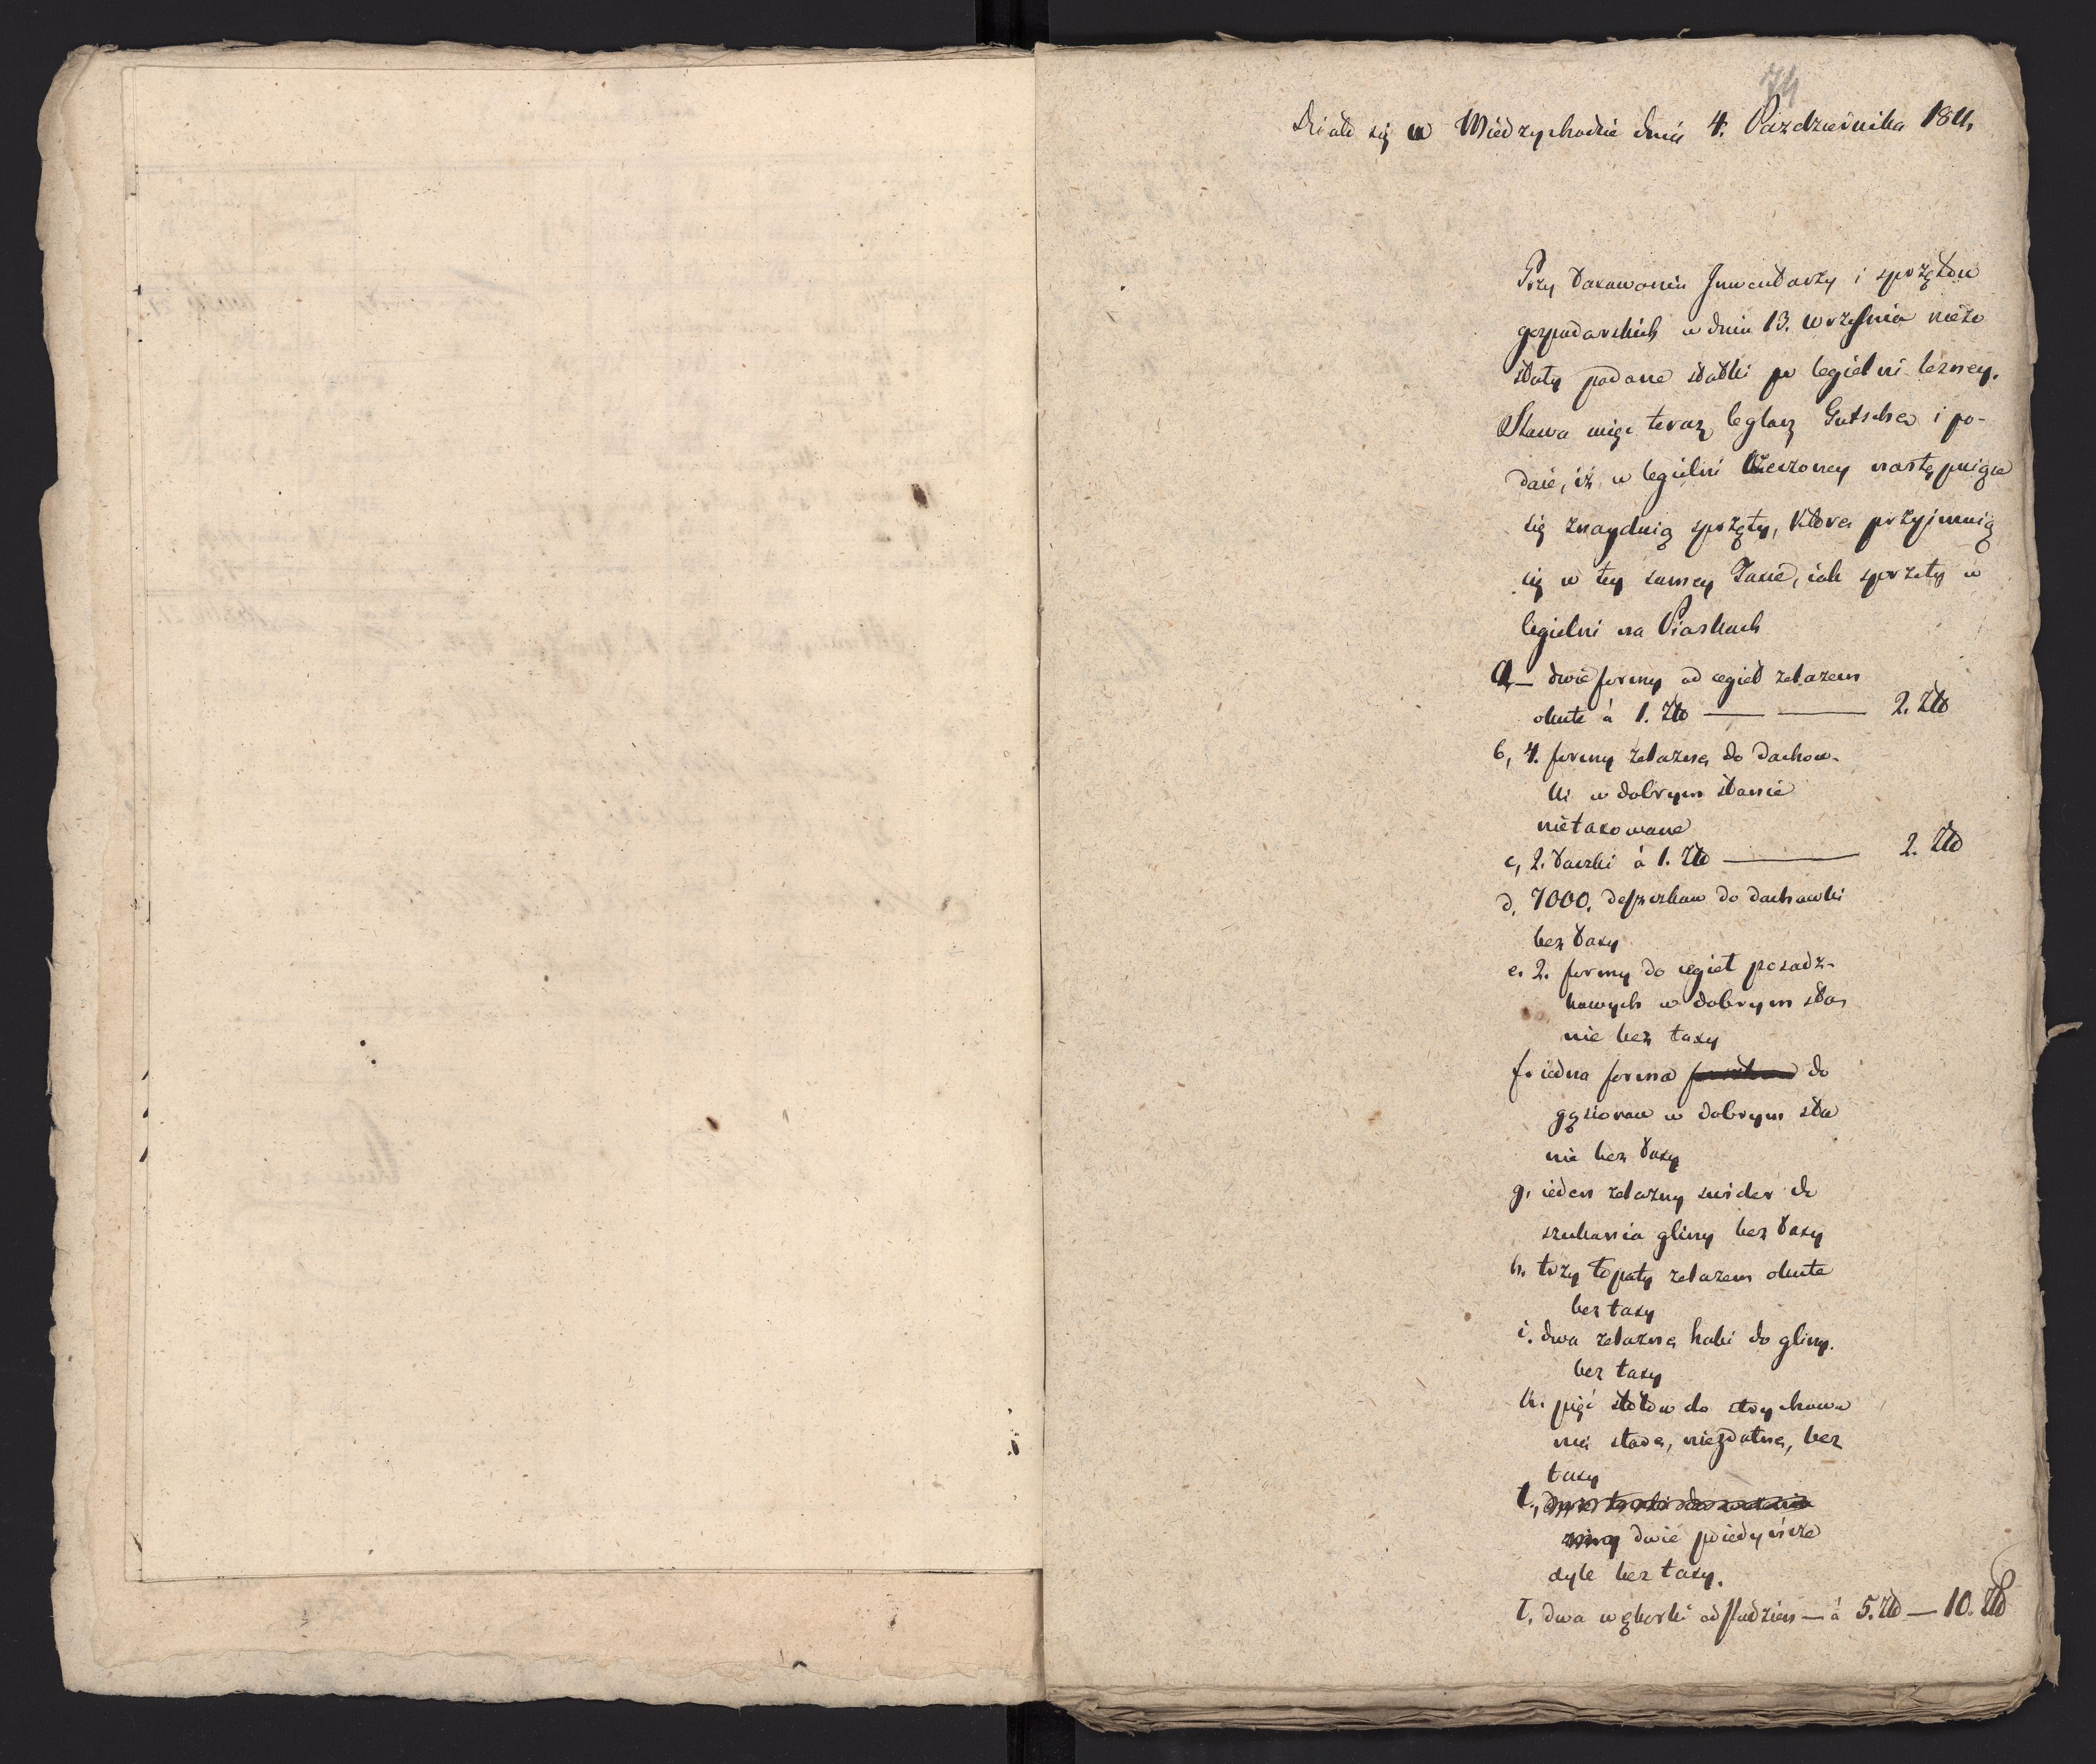 74
Działo się w Międzychodzie dnia 4. Października 1811,
Przy taxowaniu Inwentarzy i sprzętów
gospodarskich w dniu 13. września niezo
stały podane statki po cegielni leśney.
Stawa więc teraz ceglarz Gutsche i po-
daie, iż w cegielni rzeczoney następuiące
się znayduią sprzęty, które przyjmuią
się w tey samey Taxie, iak sprzęty w
cegielni na Piaskach
a — dwie formy od cegieł żelazem
okute á 1. Złt — — 2. Złt
b, 4. formy żelazne do dachow-
ki w dobrym stanie
nietaxowane
c, 2. taczki á 1. Złt — 2. Złt
d. 7000. deszczkow do dachowki
bez taxy
e. 2. formy do cegieł posadz-
kowych w dobrym sta
nie bez taxy
f. iedna forma do
gąsiorow w dobrym sta
nie bez taxy
g. ieden żelazny swider do
szukania gliny bez taxy
h. trzy łopaty żelazem okute
bez taxy
i. dwa żelazne haki do gliny.
bez taxy
k. pięć stołow do strychowa
nia stare, niezdatne, bez
taxy
l.,
dwie poiedyńcze
dyle bez taxy.
l. dwa węborki od studzien — á 5. Złt — 10. Złt